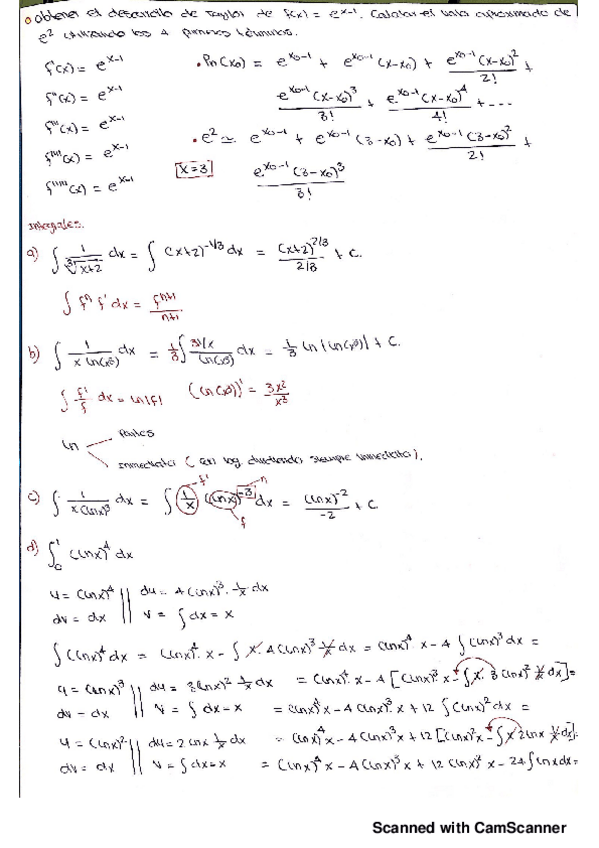 obtener el desarrollo de Taylor de f(x) = e^{x-1}. Calcular el valor aproximado de
e^2 utilizando los 4 primeros términos.
f'(x) = e^{x-1}
• Pn(x_0) = e^{x_0-1} + e^{x_0-1} (x-x_0) + e^{x_0-1} (x-x_0)^2 / 2! +
f''(x) = e^{x-1}
e^{x_0-1} (x-x_0)^3 / 3! + e^{x_0-1} (x-x_0)^4 / 4! + ...
f'''(x) = e^{x-1}
• e^2 ≃ e^{x_0-1} + e^{x_0-1} (3-x_0) + e^{x_0-1} (3-x_0)^2 / 2! +
f''''(x) = e^{x-1}
x=3
e^{x_0-1} (3-x_0)^3 / 3!
f'''''(x) = e^{x-1}
Integrales.
a) ∫ 1/∛(x+2) dx = ∫ (x+2)^{-1/3} dx = (x+2)^{2/3} / 2/3 + C.
∫ f^n f' dx = f^{n+1} / n+1
b) ∫ 1 / x ln(x^3) dx = 1/3 ∫ 3 1/x / ln(x^3) dx = 1/3 ln|ln(x^3)| + C.
∫ f'/f dx = ln|f| (ln(x^3))' = 3x^2 / x^3
Partes
ln
inmediata ( en log dividiendo siempre inmediata).
c) ∫ 1 / x(lnx)^3 dx = ∫ (1/x) (lnx)^{-3} dx = (lnx)^{-2} / -2 + C
f' n
f
d) ∫_0^1 (lnx)^4 dx
u = (lnx)^4 || du = 4(lnx)^3 · 1/x dx
dv = dx || v = ∫ dx = x
∫ (lnx)^4 dx = (lnx)^4 · x - ∫ x · 4(lnx)^3 1/x dx = (lnx)^4 x - 4 ∫ (lnx)^3 dx =
u = (lnx)^3 || du = 3(lnx)^2 1/x dx = (lnx)^4 x - 4 [(lnx)^3 x - ∫ x · 3(lnx)^2 1/x dx] =
dv = dx || v = ∫ dx = x = (lnx)^4 x - 4(lnx)^3 x + 12 ∫ (lnx)^2 dx =
u = (lnx)^2 || du = 2 lnx 1/x dx = (lnx)^4 x - 4(lnx)^3 x + 12 [(lnx)^2 x - ∫ x 2 lnx 1/x dx] =
dv = dx || v = ∫ dx = x = (lnx)^4 x - 4(lnx)^3 x + 12 (lnx)^2 x - 24 ∫ lnx dx =
Scanned with CamScanner